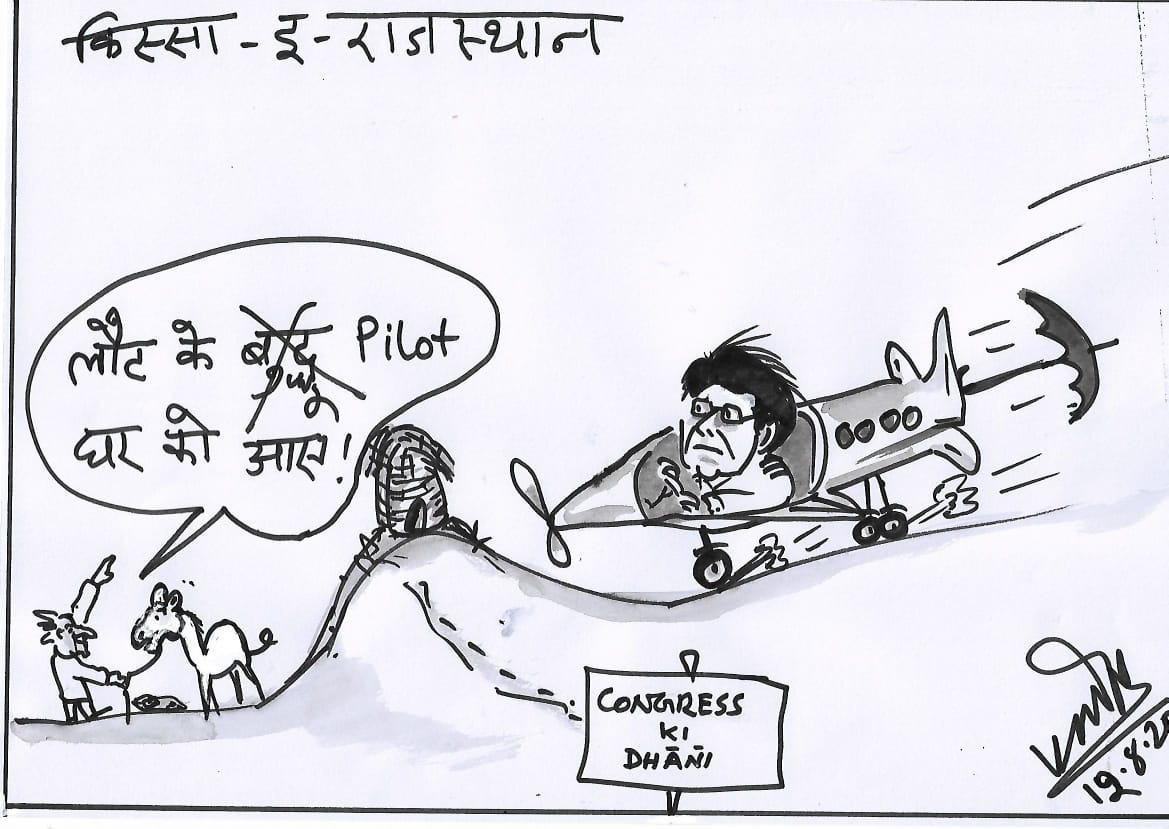 किस्सा-इ-राजस्थान
लौट के बुद्धू Pilot
घर को आए!
CONGRESS
KI
DHĀNI
12.8.20